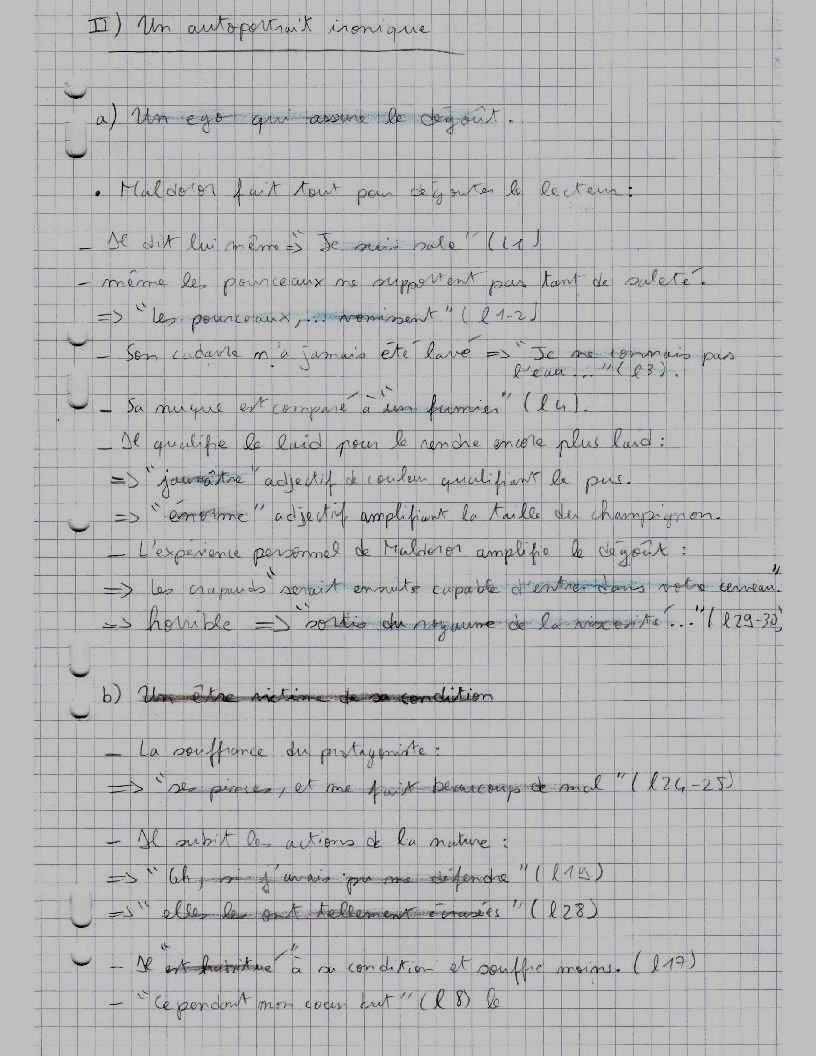 II) Un autoportrait ironique
a) Un ego qui assume le dégoût.
• Maldoror fait tout pour dégouter le lecteur :
- Il dit lui même => "Je suis sale" (l 1)
- même les pourceaux ne supportent pas tant de saleté.
=> "les pourceaux, ... vomissent" (l 1-2)
- Son cadavre n'a jamais été lavé => "Je ne connais pas
l'eau ..." (l 3).
- Sa nuque est comparé à "un fumier" (l 4).
- Il qualifie le laid pour le rendre encore plus laid :
=> "jaunâtre" adjectif de couleur qualifiant le pus.
=> "énorme" adjectif amplifiant la taille du champignon.
- L'expérience personnel de Maldoror amplifie le dégoût :
=> les crapauds "serait ensuite capable d'entrer dans votre cerveau".
=> horrible => "sortis du royaume de la viscosité ..." (l 29-30)
b) Un être victime de sa condition
- La souffrance du protagoniste :
=> "ses pinces, et me fait beaucoup de mal" (l 24-25)
- Il subit les actions de la nature :
=> "Oh, si j'avais pu me défendre" (l 19)
=> "elles les ont tellement écrasées" (l 28)
- Il "est habitué" à sa condition et souffre moins. (l 17)
- "Cependant mon coeur bat" (l 8) le